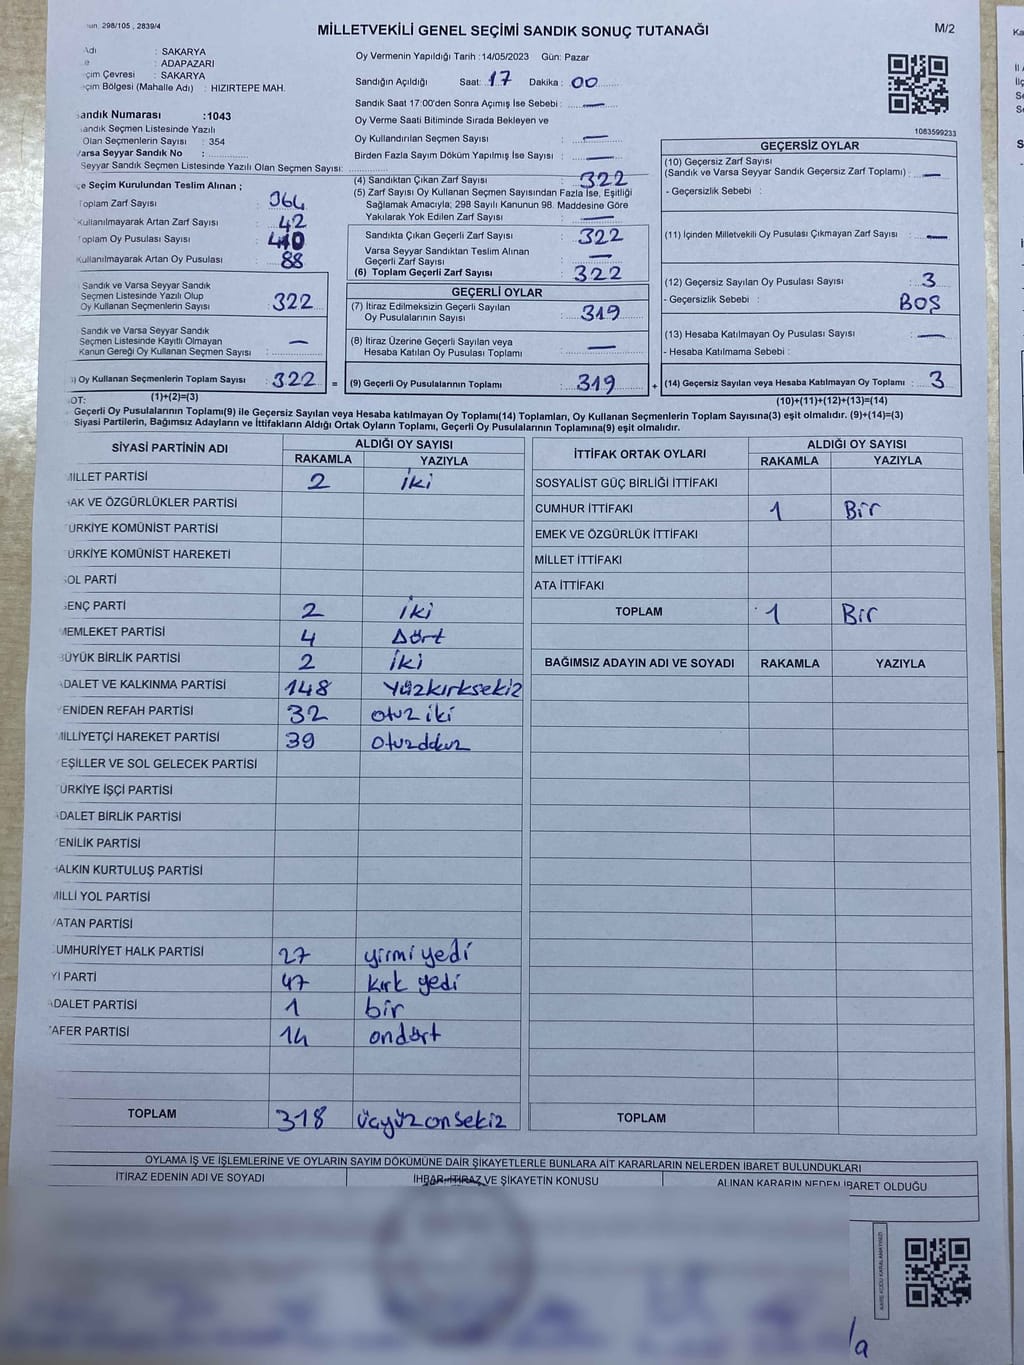 298/105 , 2839/4
MİLLETVEKİLİ GENEL SEÇİMİ SANDIK SONUÇ TUTANAĞI
M/2
Adı : SAKARYA
e : ADAPAZARI
çim Çevresi : SAKARYA
çim Bölgesi (Mahalle Adı) : HIZIRTEPE MAH.
Oy Vermenin Yapıldığı Tarih :14/05/2023 Gün: Pazar
Sandığın Açıldığı Saat: 17 Dakika : 00
Sandık Saat 17:00'den Sonra Açımış İse Sebebi : —
Oy Verme Saati Bitiminde Sırada Bekleyen ve
Oy Kullandırılan Seçmen Sayısı : —
Birden Fazla Sayım Döküm Yapılmış İse Sayısı : —
1083599233
andık Numarası :1043
andık Seçmen Listesinde Yazılı
Olan Seçmenlerin Sayısı : 354
Varsa Seyyar Sandık No :
Seyyar Sandık Seçmen Listesinde Yazılı Olan Seçmen Sayısı:
çe Seçim Kurulundan Teslim Alınan ;
Toplam Zarf Sayısı : 364
Kullanılmayarak Artan Zarf Sayısı : 42
Toplam Oy Pusulası Sayısı : 410
Kullanılmayarak Artan Oy Pusulası : 88
Sandık ve Varsa Seyyar Sandık
Seçmen Listesinde Yazılı Olup
Oy Kullanan Seçmenlerin Sayısı : 322
Sandık ve Varsa Seyyar Sandık
Seçmen Listesinde Kayıtlı Olmayan
Kanun Gereği Oy Kullanan Seçmen Sayısı : —
) Oy Kullanan Seçmenlerin Toplam Sayısı : 322 =
(1)+(2)=(3)
(4) Sandıktan Çıkan Zarf Sayısı : 322
(5) Zarf Sayısı Oy Kullanan Seçmen Sayısından Fazla İse, Eşitliği
Sağlamak Amacıyla; 298 Sayılı Kanunun 98. Maddesine Göre
Yakılarak Yok Edilen Zarf Sayısı : —
Sandıkta Çıkan Geçerli Zarf Sayısı : 322
Varsa Seyyar Sandıktan Teslim Alınan
Geçerli Zarf Sayısı : —
(6) Toplam Geçerli Zarf Sayısı : 322
GEÇERLİ OYLAR
(7) İtiraz Edilmeksizin Geçerli Sayılan
Oy Pusulalarının Sayısı : 319
(8) İtiraz Üzerine Geçerli Sayılan veya
Hesaba Katılan Oy Pusulası Toplamı : —
(9) Geçerli Oy Pusulalarının Toplamı : 319 +
GEÇERSİZ OYLAR
(10) Geçersiz Zarf Sayısı
(Sandık ve Varsa Seyyar Sandık Geçersiz Zarf Toplamı) : —
- Geçersizlik Sebebi :
(11) İçinden Milletvekili Oy Pusulası Çıkmayan Zarf Sayısı : —
(12) Geçersiz Sayılan Oy Pusulası Sayısı : 3
- Geçersizlik Sebebi : BOŞ
(13) Hesaba Katılmayan Oy Pusulası Sayısı : —
- Hesaba Katılmama Sebebi :
(14) Geçersiz Sayılan veya Hesaba Katılmayan Oy Toplamı : 3
(10)+(11)+(12)+(13)=(14)
OT:
Geçerli Oy Pusulalarının Toplamı(9) ile Geçersiz Sayılan veya Hesaba katılmayan Oy Toplamı(14) Toplamları, Oy Kullanan Seçmenlerin Toplam Sayısına(3) eşit olmalıdır. (9)+(14)=(3)
Siyasi Partilerin, Bağımsız Adayların ve İttifakların Aldığı Ortak Oyların Toplamı, Geçerli Oy Pusulalarının Toplamına(9) eşit olmalıdır.
SİYASİ PARTİNİN ADI ALDIĞI OY SAYISI
RAKAMLA YAZIYLA
MİLLET PARTİSİ 2 iki
AK VE ÖZGÜRLÜKLER PARTİSİ
ÜRKİYE KOMÜNİST PARTİSİ
ÜRKİYE KOMÜNİST HAREKETİ
SOL PARTİ
GENÇ PARTİ 2 iki
MEMLEKET PARTİSİ 4 Dört
BÜYÜK BİRLİK PARTİSİ 2 iki
ADALET VE KALKINMA PARTİSİ 148 Yüzkırksekiz
YENİDEN REFAH PARTİSİ 32 otuz iki
MİLLİYETÇİ HAREKET PARTİSİ 39 Otuzdkuz
YEŞİLLER VE SOL GELECEK PARTİSİ
ÜRKİYE İŞÇİ PARTİSİ
ADALET BİRLİK PARTİSİ
YENİLİK PARTİSİ
HALKIN KURTULUŞ PARTİSİ
MİLLİ YOL PARTİSİ
VATAN PARTİSİ
CUMHURİYET HALK PARTİSİ 27 yirmi yedi
Yİ PARTİ 47 kırk yedi
ADALET PARTİSİ 1 bir
ZAFER PARTİSİ 14 ondört
TOPLAM 318 üçyüzonsekiz
İTTİFAK ORTAK OYLARI ALDIĞI OY SAYISI
RAKAMLA YAZIYLA
SOSYALİST GÜÇ BİRLİĞİ İTTİFAKI
CUMHUR İTTİFAKI 1 Bir
EMEK VE ÖZGÜRLÜK İTTİFAKI
MİLLET İTTİFAKI
ATA İTTİFAKI
TOPLAM 1 Bir
BAĞIMSIZ ADAYIN ADI VE SOYADI RAKAMLA YAZIYLA
TOPLAM
OYLAMA İŞ VE İŞLEMLERİNE VE OYLARIN SAYIM DÖKÜMÜNE DAİR ŞİKAYETLERLE BUNLARA AİT KARARLARIN NELERDEN İBARET BULUNDUKLARI
İTİRAZ EDENİN ADI VE SOYADI İHBAR-İTİRAZ VE ŞİKAYETİN KONUSU ALINAN KARARIN NEDEN İBARET OLDUĞU
KARE KODU KARALAMAYINIZ!